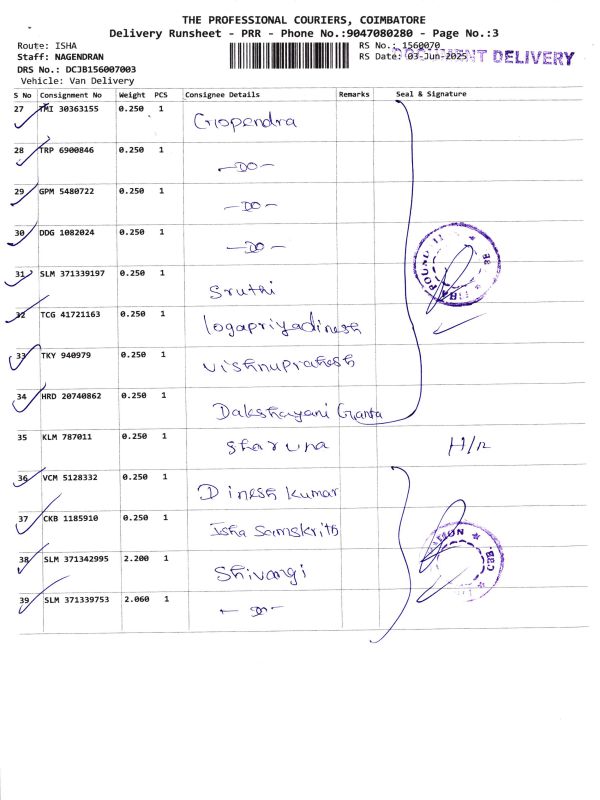 THE PROFESSIONAL COURIERS, COIMBATORE
Delivery Runsheet - PRR - Phone No.:9047080280 - Page No.:3
Route: ISHA RS No.: 1560070
Staff: NAGENDRAN RS Date: 03-Jun-2025 DELIVERY
DRS No.: DCJB156007003
Vehicle: Van Delivery
S No Consignment No Weight PCS Consignee Details Remarks Seal & Signature
27 TMI 30363155 0.250 1 Gopendra
28 TRP 6900846 0.250 1 —DO—
29 GPM 5480722 0.250 1 —DO—
30 DDG 1082024 0.250 1 —DO—
31 SLM 371339197 0.250 1 Sruthi
32 TCG 41721163 0.250 1 logapriyadinesh
33 TKY 940979 0.250 1 Vishnuprakash
34 HRD 20740862 0.250 1 Dakshayani Ganta
35 KLM 787011 0.250 1 Sharuna H/R
36 VCM 5128332 0.250 1 Dinesh kumar
37 CKB 1185910 0.250 1 Isha Samskriti
38 SLM 371342995 2.200 1 Shivangi
39 SLM 371339753 2.060 1 —DO—